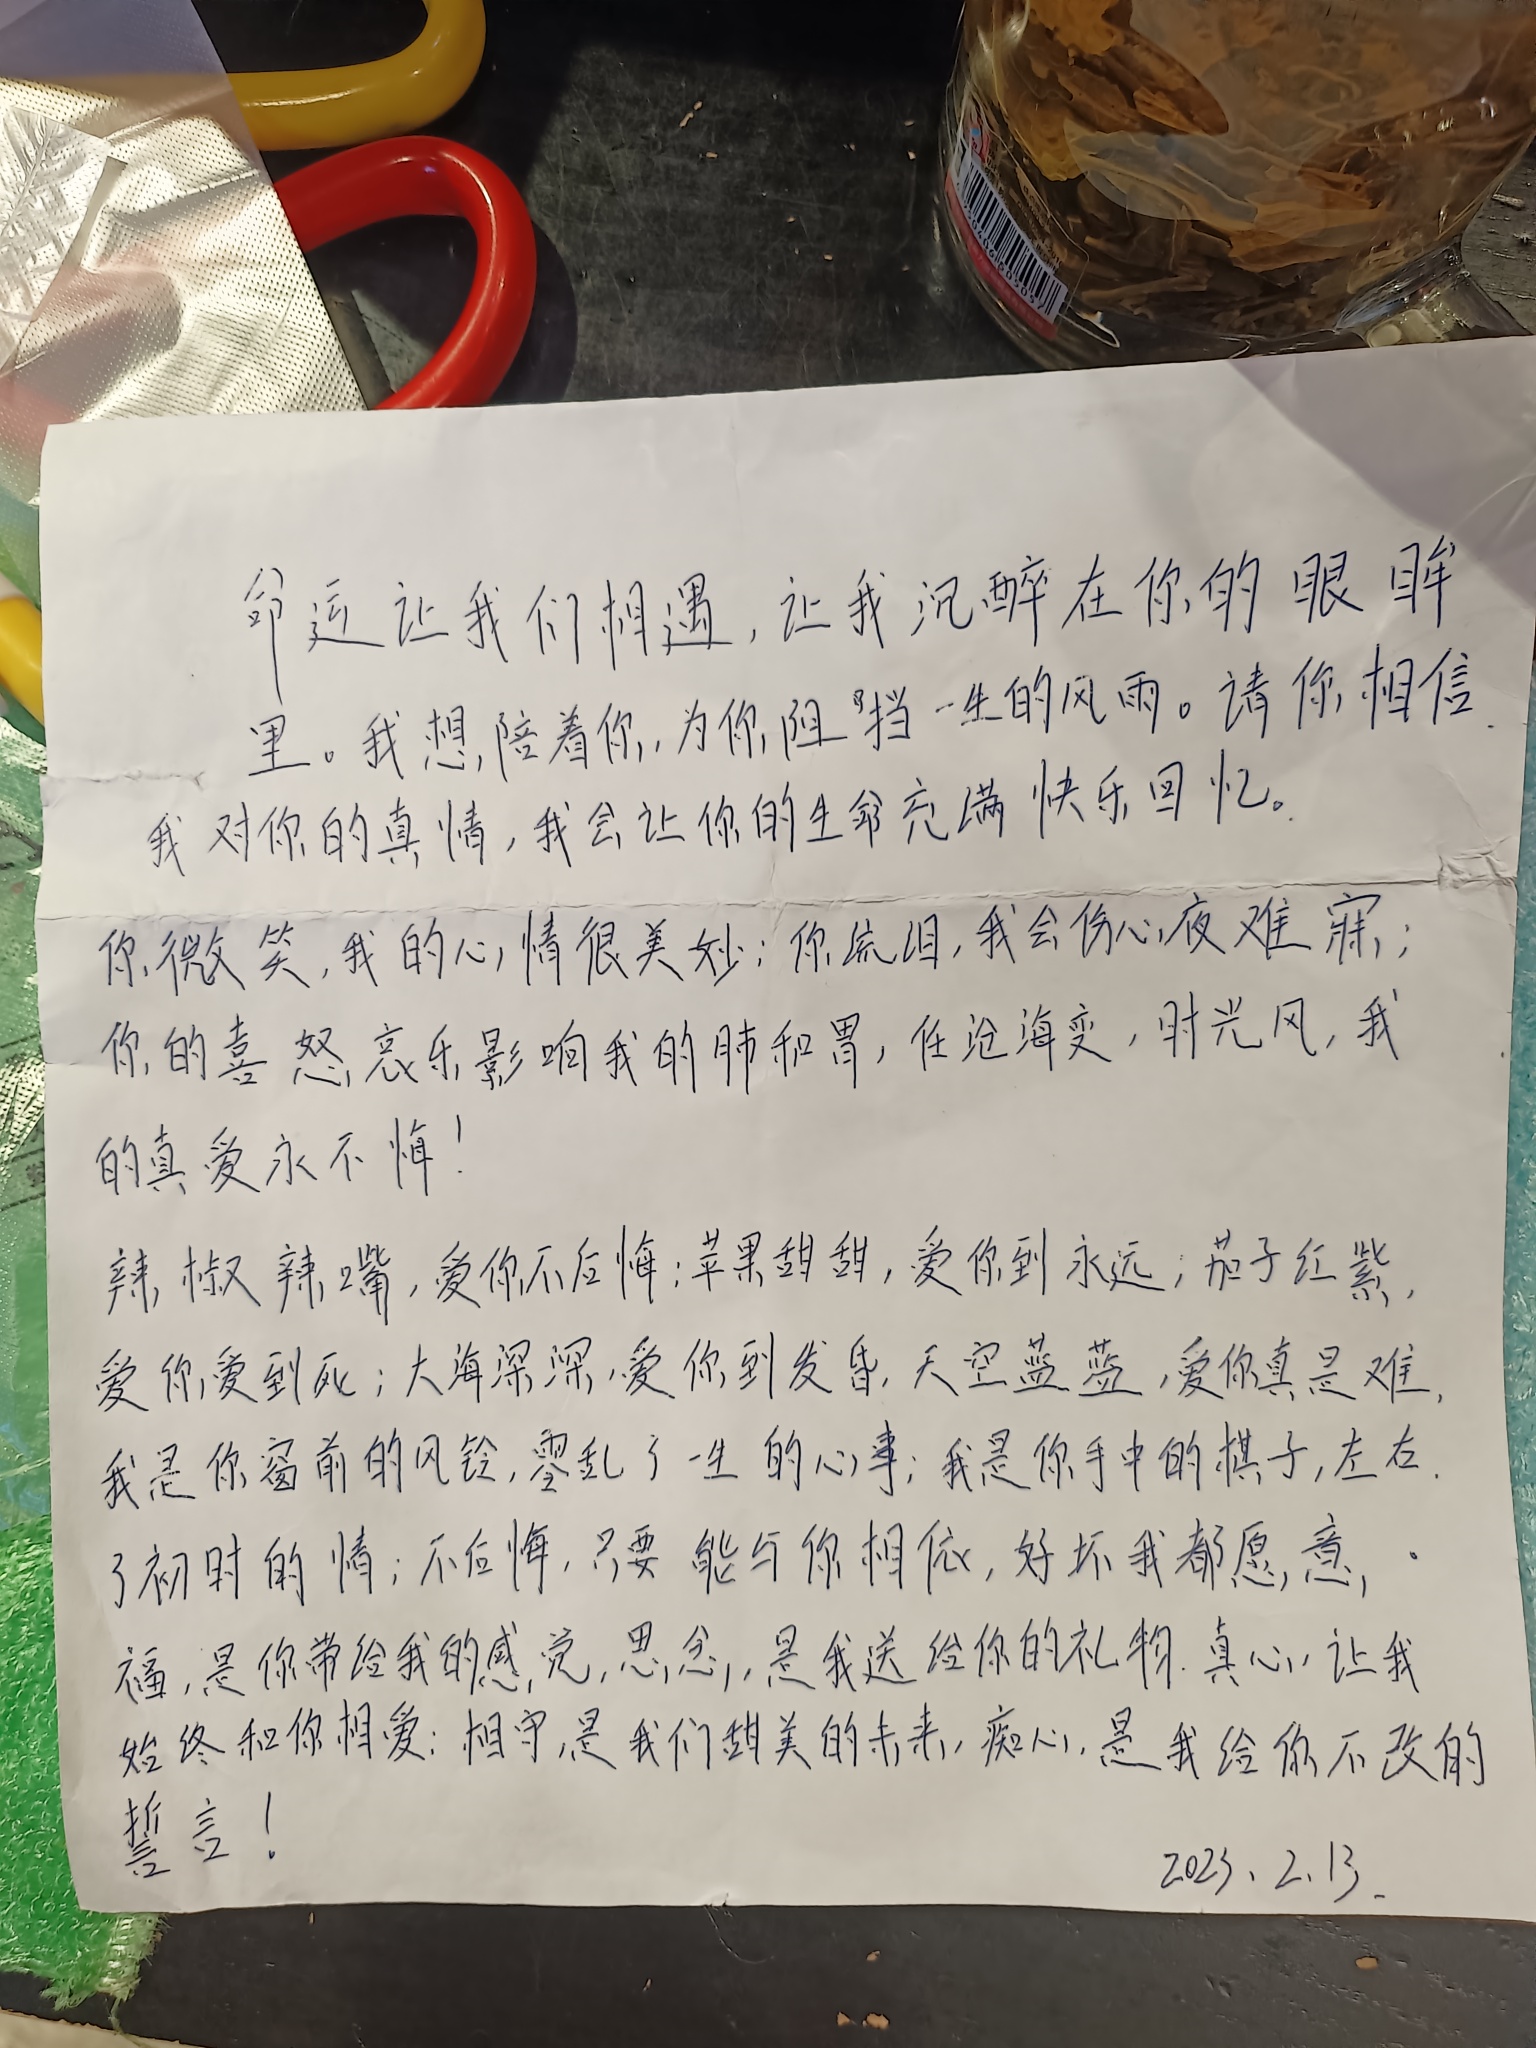 命运让我们相遇，让我沉醉在你的眼眸
里。我想陪着你，为你阻挡一生的风雨。请你相信
我对你的真情，我会让你的生命充满快乐回忆。
你微笑，我的心情很美妙；你流泪，我会伤心夜难寐；
你的喜怒哀乐影响我的肺和胃，任沧海变，时光风，我
的真爱永不悔！
辣椒辣嘴，爱你不后悔；苹果甜甜，爱你到永远；茄子红紫，
爱你爱到死；大海深深，爱你到发昏，天空蓝蓝，爱你真是难，
我是你窗前的风铃，零乱了一生的心事；我是你手中的棋子，左右
了初时的情；不后悔，只要能与你相依，好坏我都愿意，
福，是你带给我的感觉，思念，是我送给你的礼物．真心，让我
始终和你相爱；相守，是我们甜美的未来，痴心，是我给你不改的
誓言！
2023、2、13.